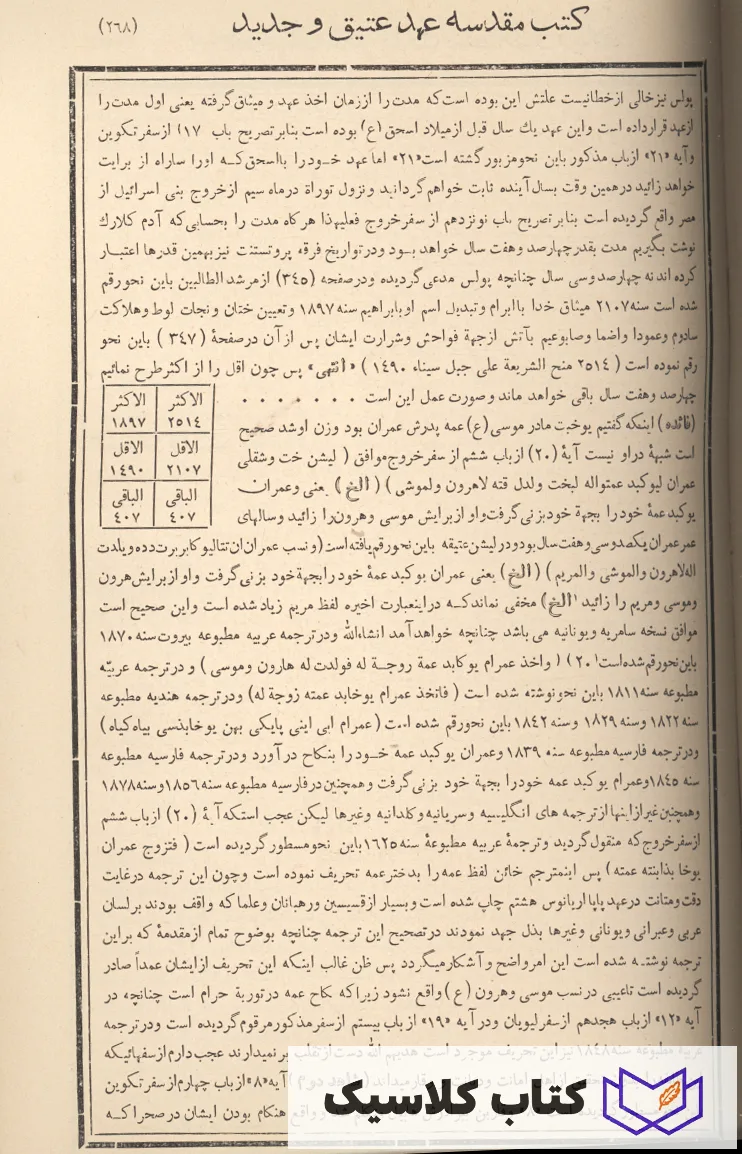 کتب مقدسه عهد عتیق و جدید (۲٦٨)
پولس نیز خالی از خطا نیست علتش این بوده است که مدت را از زمان اخذ عهد و میثاق گرفته یعنی اول مدت را
از عهد قرار داده است و این عهد یك سال قبل از میلاد اسحق (ع) بوده است بنابر تصریح باب ۱۷) از سفر تکوین
و آیه «۲۱» از باب مذکور باین نحو مزبور گشته است «۲۱» اما عهد خود را با اسحق که اورا ساراه از برایت
خواهد زائید در همین وقت بسال آینده ثابت خواهم گردانید و نزول توراة در ماه سیم از خروج بنی اسرائیل از
مصر واقع گردیده است بنابر تصریح باب نوزدهم از سفر خروج فعلیهذا هر کاه مدت را بحسابی که آدم کلارك
نوشت بگیریم مدت بقدر چهارصد و هفت سال خواهد بود و در تواریخ فرقه پروتستنت نیز بهمین قدرها اعتبار
کرده اند نه چهارصد و سی سال چنانچه پولس مدعی گردیده و در صفحه (۳٤٥) از مرشد الطالبین باین نحو رقم
شده است سنه ۲۱۰۷ میثاق خدا با ابرام و تبدیل اسم او بابراهیم سنه ۱۸۹۷ و تعیین ختان و نجات لوط و هلاکت
سادوم و عمودا و اضما و صابوعیم بآتش از جهة فواحش و شرارت ایشان پس از آن در صفحهٔ (۳٤۷) باین نحو
رقم نموده است (۲٥۱٤ منح الشریعة علی جبل سیناء ۱٤۹۰) «انتهی» پس چون اقل را از اکثر طرح نمائیم
چهارصد و هفت سال باقی خواهد ماند و صورت عمل این است . . . . . . .
الاکثر الاکثر
۲٥۱٤ ۱۸۹۷
الاقل الاقل
۲۱۰۷ ۱٤۹۰
الباقی الباقی
٤۰۷ ٤۰۷
(فائده) اینکه گفتیم یوخبت مادر موسی (ع) عمه پدرش عمران بود وزن او شد صحیح
است شبههٔ در او نیست آیهٔ (۲۰) از باب ششم از سفر خروج موافق (لیشن خت وشقلی
عمران لیوکبد عمتواله لبخت ولدل قته لاهرون ولموشی) (الخ) یعنی و عمران
یوکبد عمهٔ خود را بجهة خود بزنی گرفت و او از برایش موسی و هرون را زائید و سالهای
عمر عمران یکصد و سی و هفت سال بود و در لیشن عتیقه باین نحو رقم یافته است
اله لاهرون والموشی والمریم) (الخ) یعنی عمران یوکبد عمهٔ خود را بجهة خود بزنی گرفت و او از برایش هرون
و موسی و مریم را زائید (الخ) مخفی نماند که در اینعبارت اخیره لفظ مریم زیاد شده است و این صحیح است
موافق نسخه سامریه و یونانیه می باشد چنانچه خواهد آمد انشاءالله و در ترجمه عربیه مطبوعه بیروت سنه ۱۸۷۰
باین نحو رقم شده است (۲۰) (واخذ عمرام یوکابد عمة زوجة له فولدت له هارون وموسی) و در ترجمه عربیّه
مطبوعه سنه ۱۸۱۱ باین نحو نوشته شده است (فاتخذ عمرام یوخابد عمته زوجة له) و در ترجمه هندیه مطبوعه
سنه ۱۸۲۲ و سنه ۱۸۲۹ و سنه ۱۸٤۲ باین نحو رقم شده است (عمرام ابی اینی پایکی بهن یوخابذسی بیاه کیاه)
و در ترجمه فارسیه مطبوعه سنه ۱۸۳۹ و عمران یوکبد عمه خود را بنکاح در آورد و در ترجمه فارسیه مطبوعه
سنه ۱۸٤٥ و عمرام یوکبد عمه خود را بجهة خود بزنی گرفت و همچنین در فارسیه مطبوعه سنه ۱۸٥٦ و سنه ۱۸۷۸
و همچنین غیر از اینها از ترجمه های انگلیسیه و سریانیه و کلدانیه و غیرها لیکن عجب است که آیهٔ (۲۰) از باب ششم
از سفر خروج که منقول گردید و ترجمهٔ عربیه مطبوعهٔ سنه ۱٦۲٥ باین نحو مسطور گردیده است (فتزوج عمران
یوخابذ ابنته عمته) پس اینمترجم خائن لفظ عمه را بدختر عمه تحریف نموده است و چون این ترجمه در غایت
دقت و متانت در عهد پاپا اربانوس هشتم چاپ شده است و بسیار از قسیسین و رهبانان و علما که واقف بودند بر لسان
عربی و عبرانی و یونانی و غیرها بذل جهد نمودند در تصحیح این ترجمه چنانچه بوضوح تمام از مقدمهٔ که بر این
ترجمه نوشته شده است این امر واضح و آشکار میگردد پس ظن غالب اینکه این تحریف از ایشان عمداً صادر
گردیده است تا عیبی در نسب موسی و هرون (ع) واقع نشود زیرا که نکاح عمه در توریة حرام است چنانچه در
آیه «۱۲» از باب هجدهم از سفر لیویان و در آیه «۱۹» از باب بیستم از سفر مذکور مرقوم گردیده است و در ترجمه
عربیة مطبوعه سنه ۱۸٤۸ نیز این تحریف موجود است هدیهم الله دست از تقلب بر نمیدارند عجب دارم از سفهائیکه
(شاهد دوم) آیه «۸» از باب چهارم از سفر تکوین
هنکام بودن ایشان در صحرا که
کتاب کلاسیک